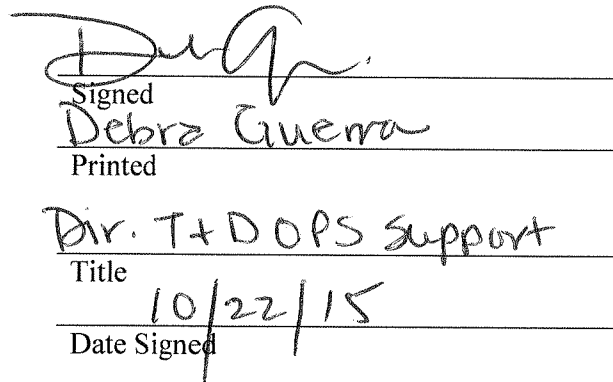 Signed
Debra Guerra
Printed
Dir. T+D OPS Support
Title
10/22/15
Date Signed